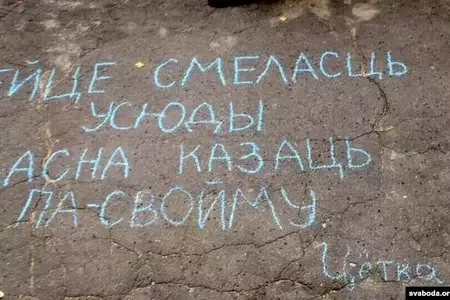 ЙЦЕ СМЕЛАСЦЬ
УСЮДЫ
АСНА КАЗАЦЬ
ПА-СВОЙМУ
Цётка
svaboda.or